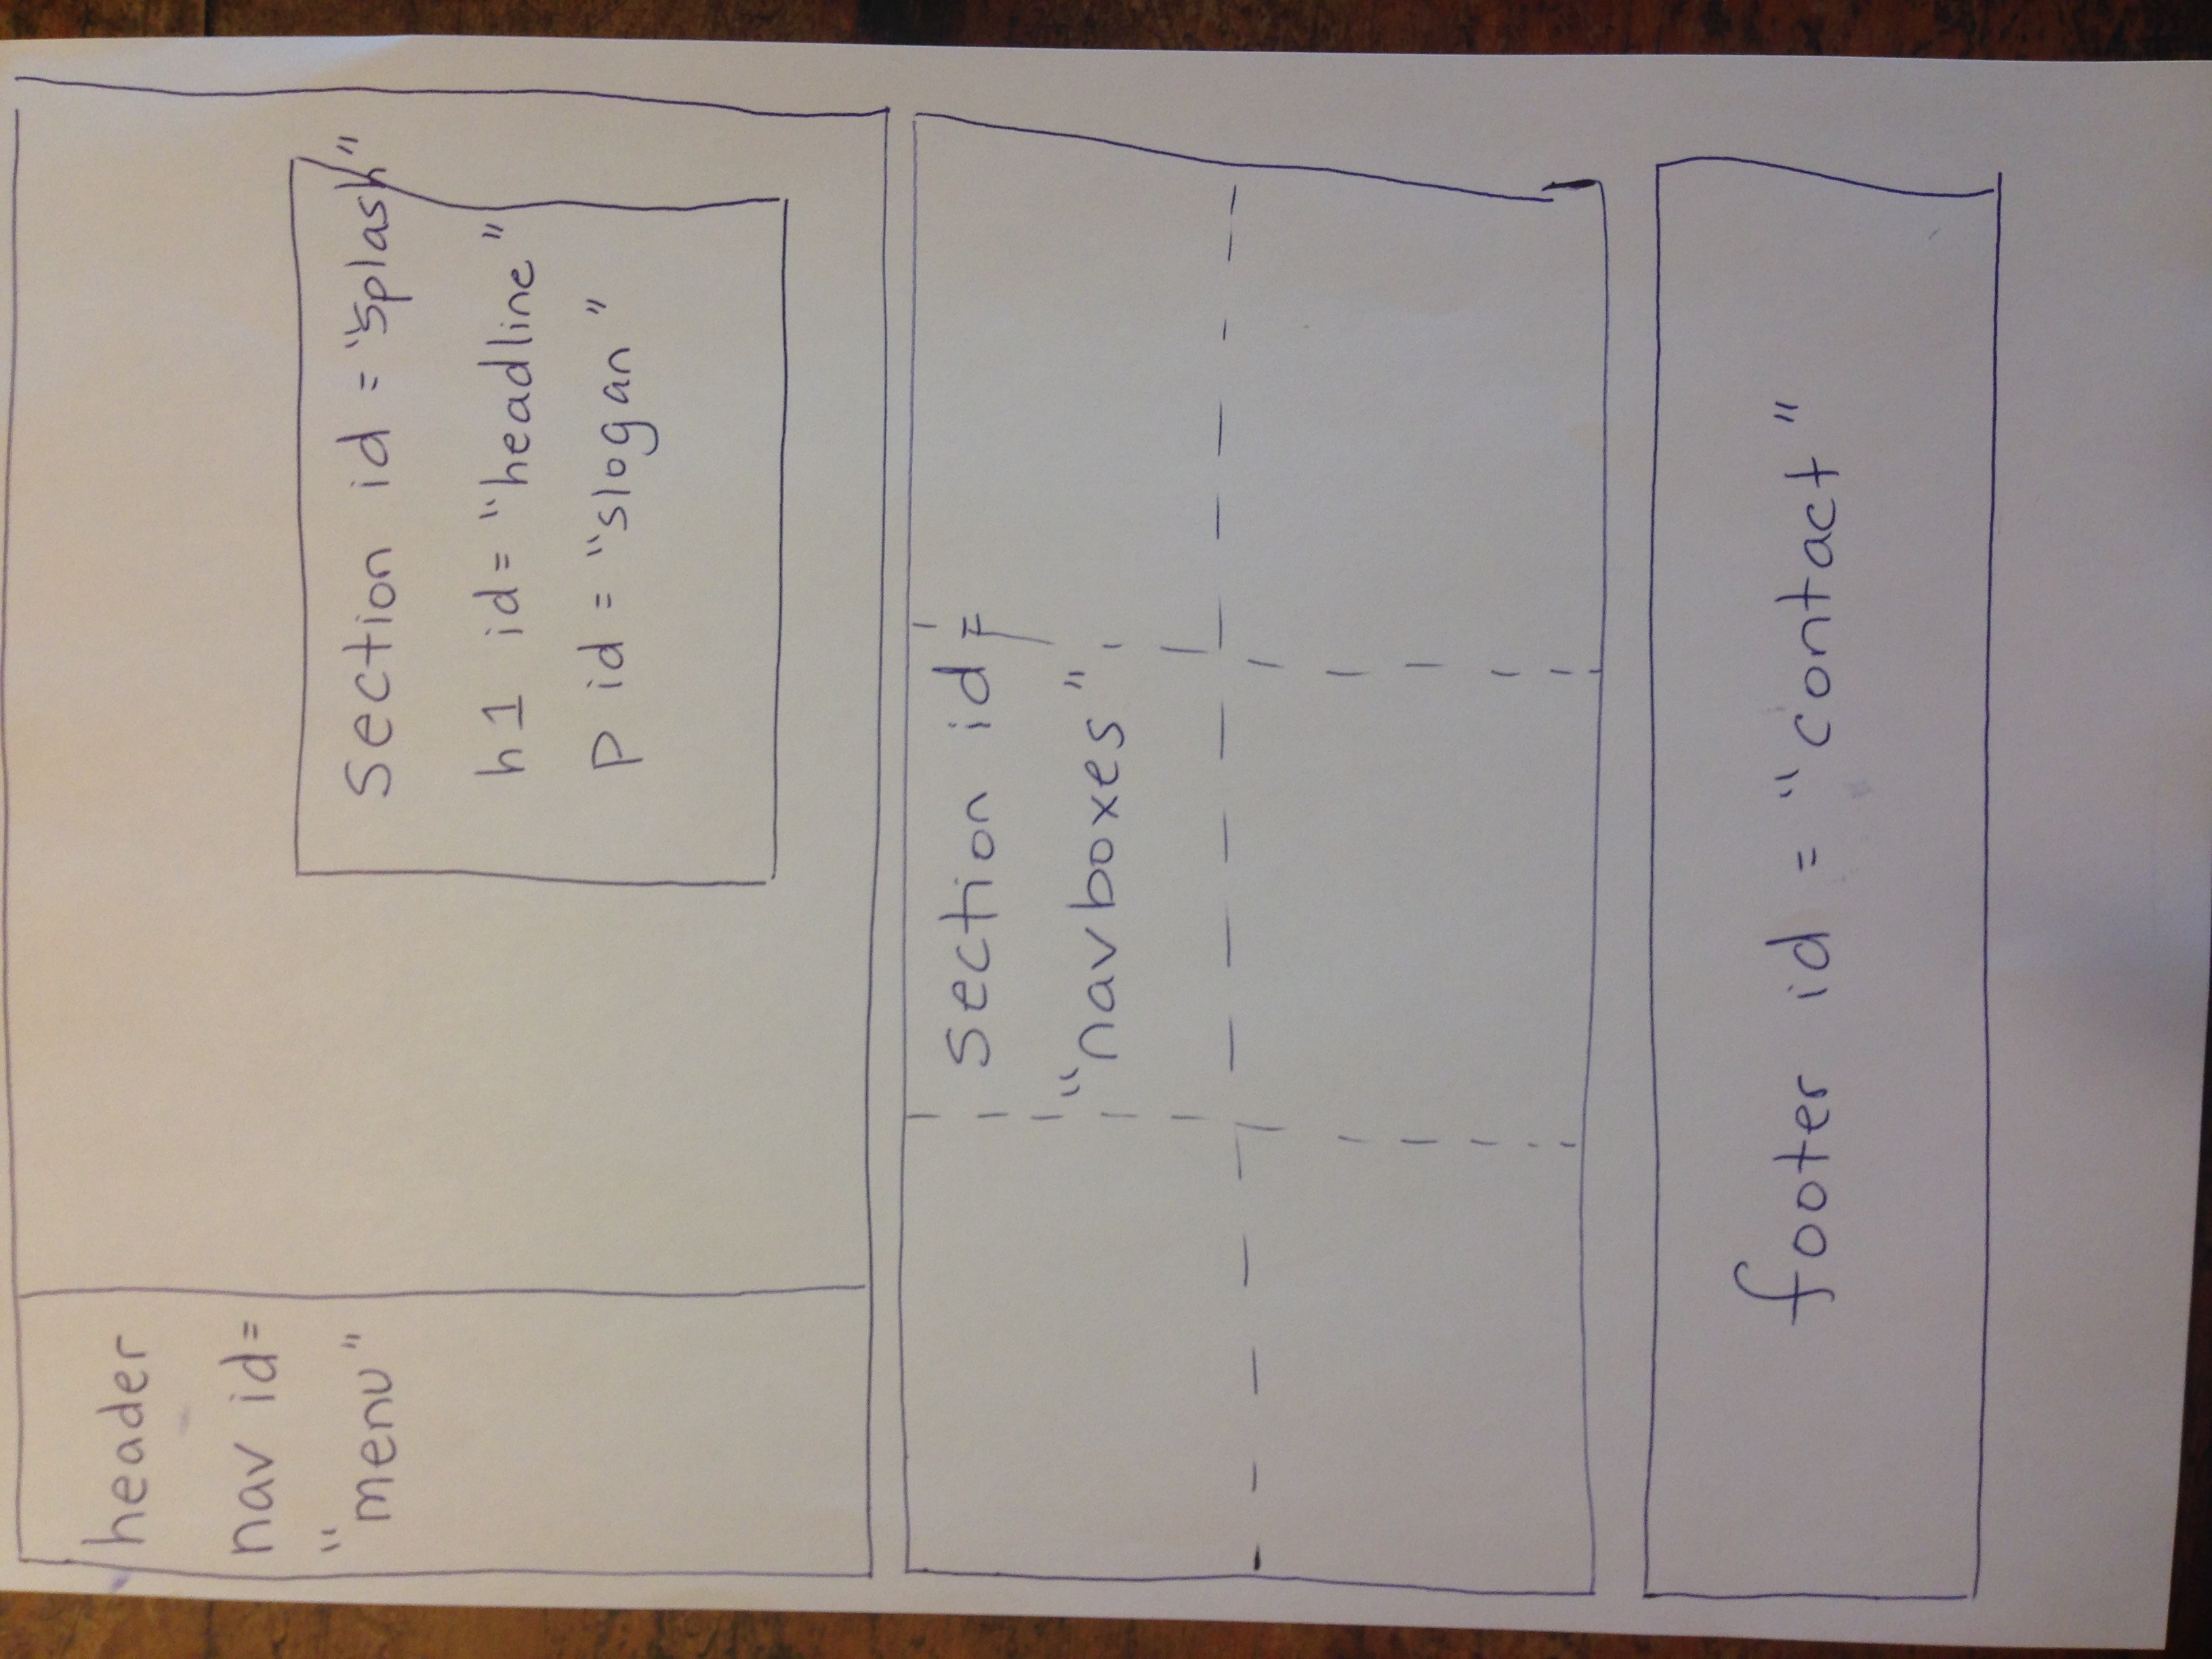 header
nav id=
"menu"
section id = "splash"
h1 id= "headline"
p id = "slogan"
section id=
"navboxes"
footer id = "contact"